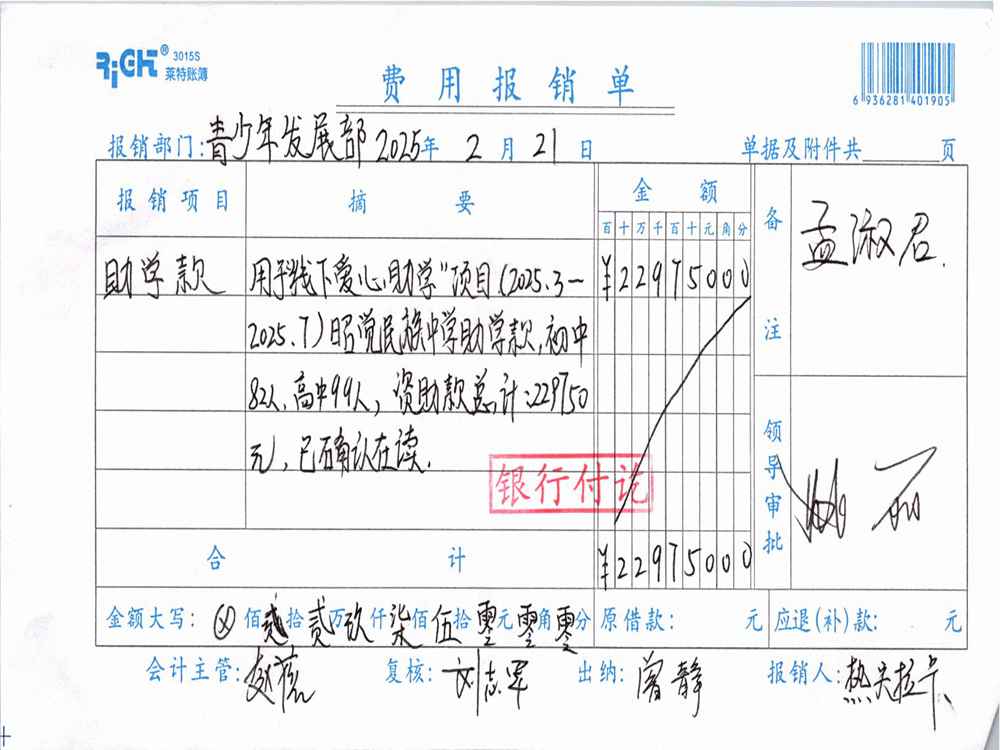 RiGHT® 3015S
莱特账簿
费用报销单
6 936281 401905
报销部门:青少年发展部 2025年 2 月 21 日 单据及附件共 页
报销项目 摘要 金额 备注 孟淑君.
百十万千百十元角分
助学款 用于线下爱心助学"项目(2025.3—
¥22975000
2025.7)昭觉民族中学助学款,初中
82人,高中99人,资助款总计:229750
元,已确认在读.
银行付讫
领导审批
合计 ¥22975000
金额大写:ⓧ佰贰拾贰万玖仟柒佰伍拾零元零角零分 原借款: 元 应退(补)款: 元
会计主管: 复核:刘志军 出纳:曾静 报销人:热夫拉卡